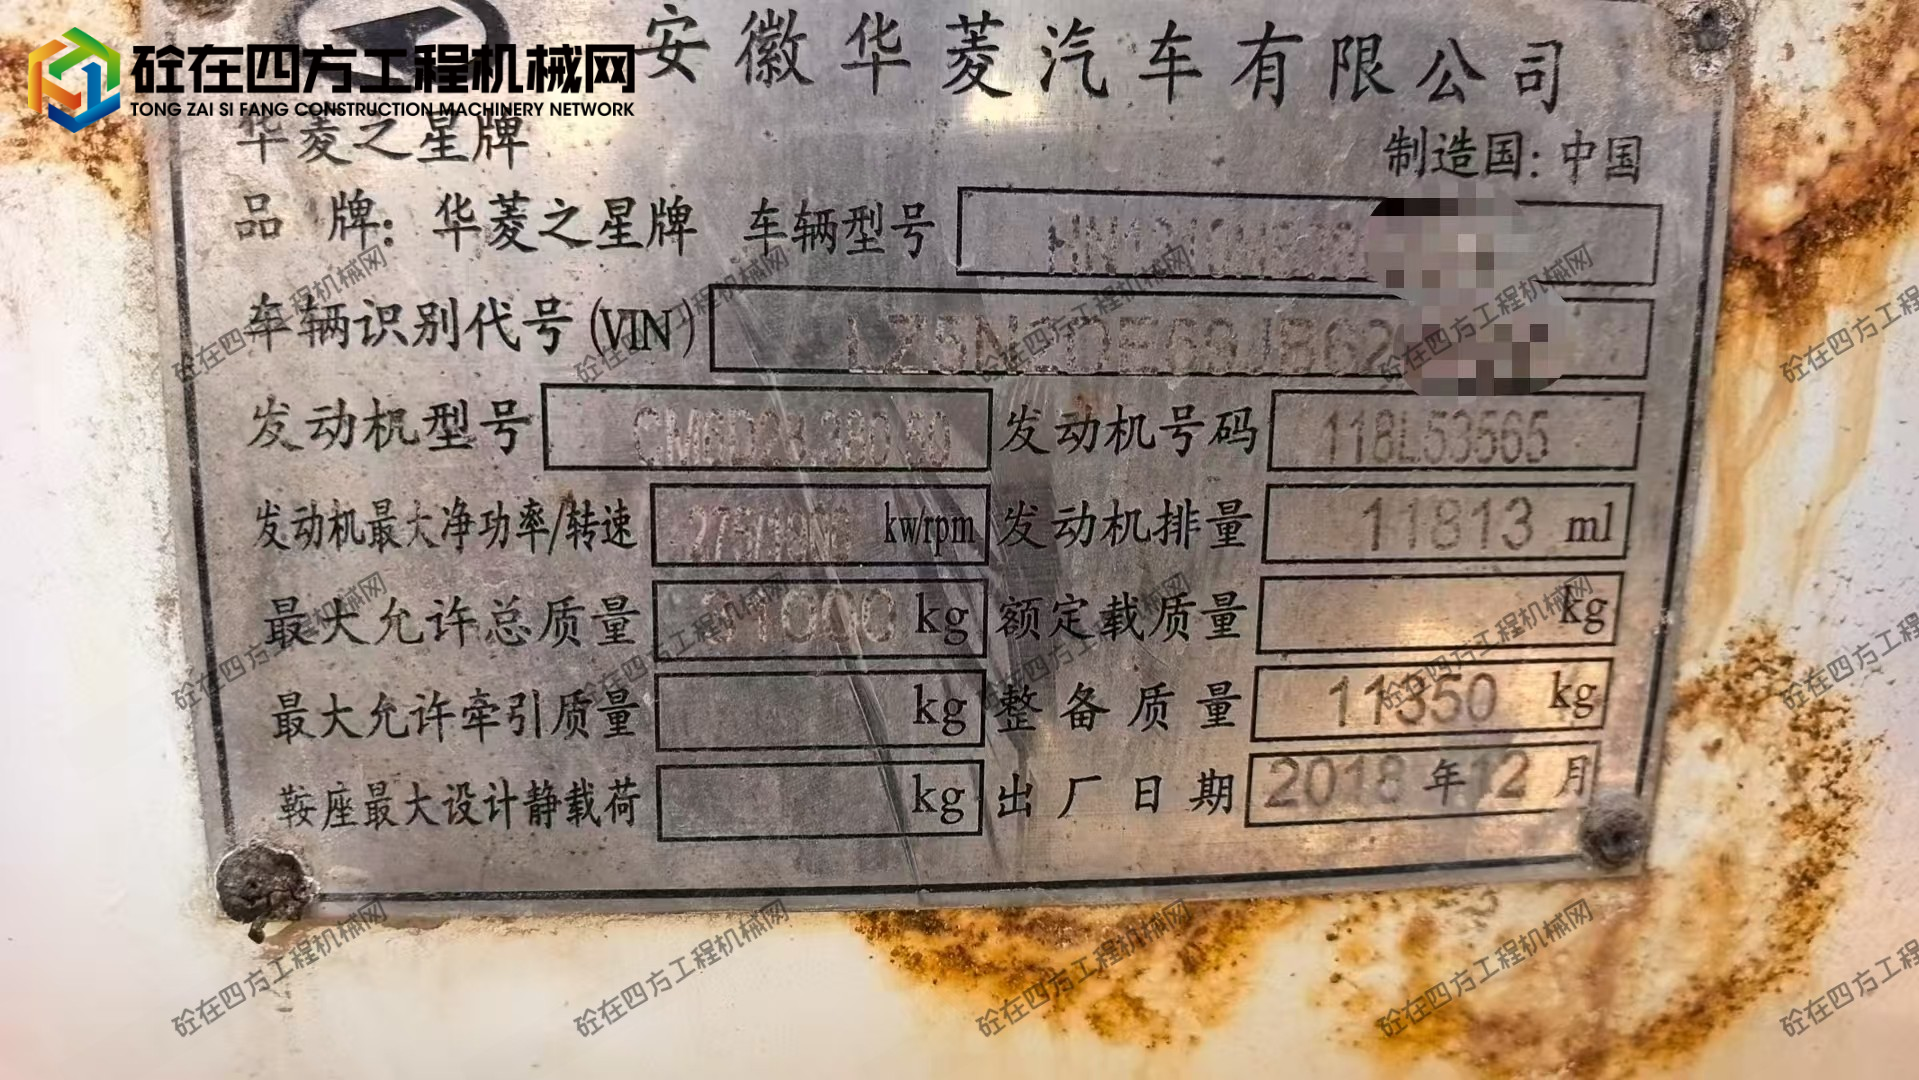 安徽华菱汽车有限公司
砼在四方工程机械网
TONG ZAI SI FANG CONSTRUCTION MACHINERY NETWORK
华菱之星牌
制造国：中国
品 牌：华菱之星牌 车辆型号
车辆识别代号(VIN)
发动机型号 CM6D28.380 50 发动机号码 118L53565
发动机最大净功率/转速 kw/rpm 发动机排量 11813 ml
最大允许总质量 kg 额定载质量 kg
最大允许牵引质量 kg 整备质量 11350 kg
鞍座最大设计静载荷 kg 出厂日期 2018 年 12 月
砼在四方工程机械网